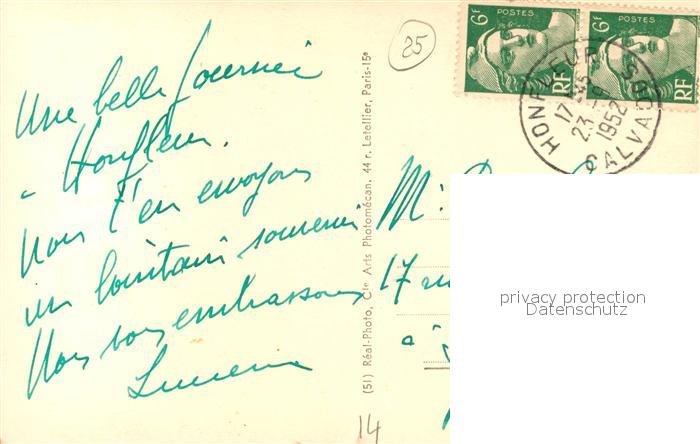 Une belle journée
à Honfleur.
Nous t'en envoyons
un lointain souvenir
Nous vous embrassons
25
6F POSTES RF
6F POSTES RF
HONFLEUR CALVADOS
17
23
1952
(51) Réal-Photo, Cie Arts Photomécan. 44 r. Letellier, Paris-15e
14
M:
17
à
privacy protection
Datenschutz